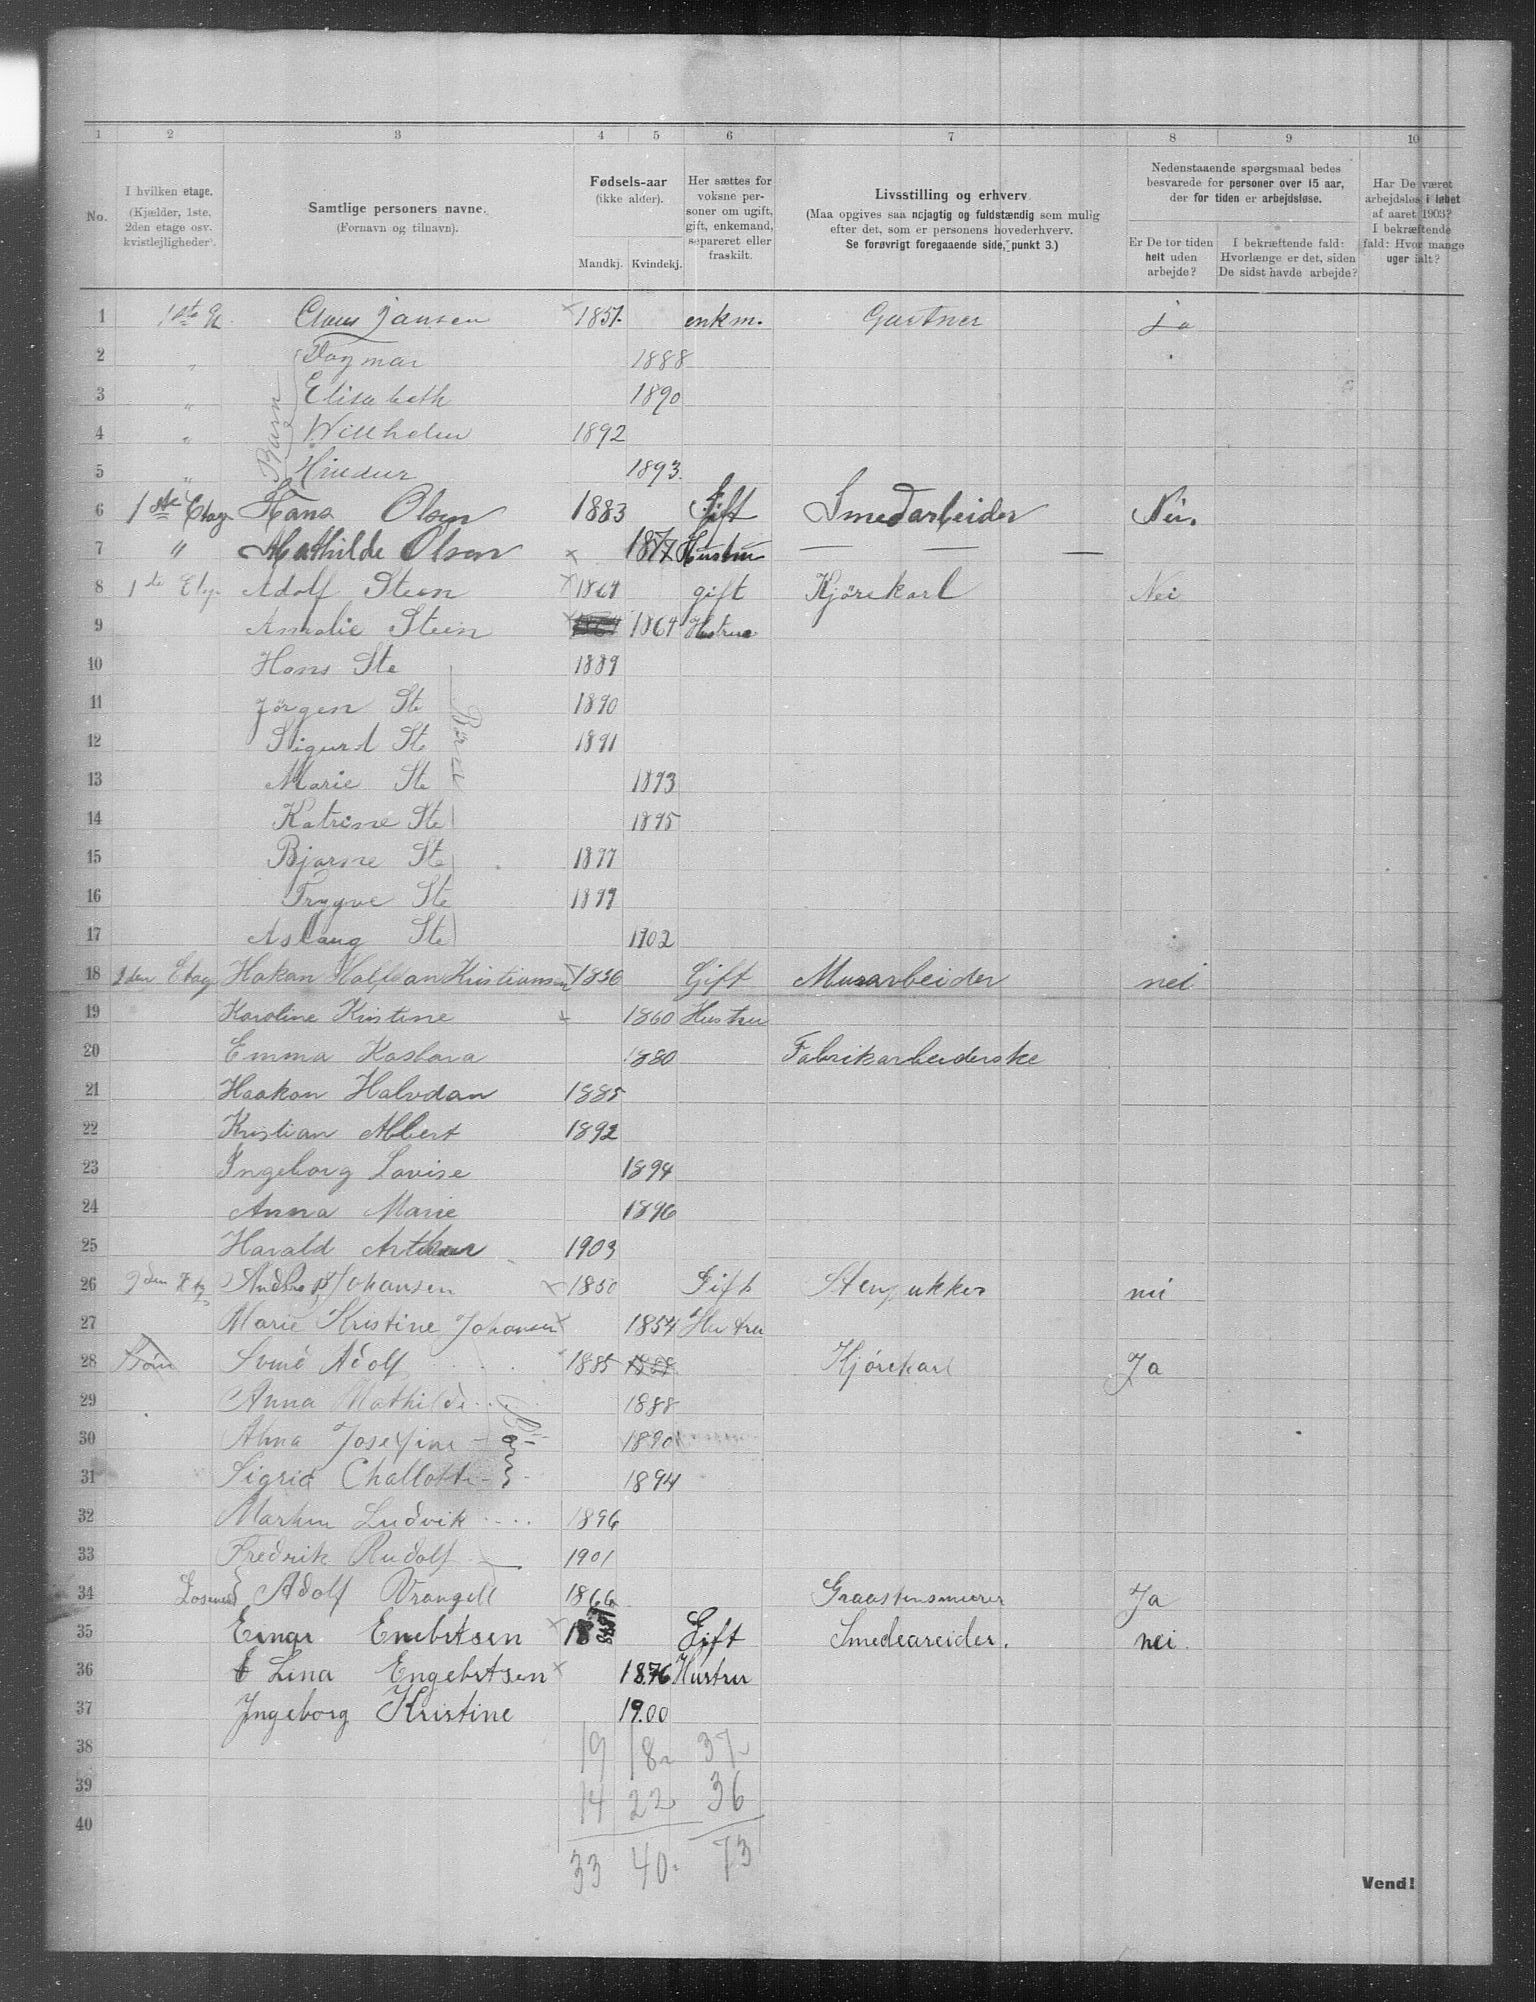 1 2 3 4 5 6 7 8 9 10
No.
I hvilken etage.
(Kjælder, 1ste, 2den etage osv. kvistlejligheder).
Samtlige personers navne.
(Fornavn og tilnavn).
Fødsels-aar
(ikke alder).
Mandkj. Kvindekj.
Her sættes for voksne personer om ugift, gift, enkemand, separeret eller fraskilt.
Livsstilling og erhverv
(Maa opgives saa nøjagtig og fuldstændig som mulig efter det, som er personens hovederhverv.
Se forøvrigt foregaaende side, punkt 3.)
Nedenstaaende spørgsmaal bedes besvarede for personer over 15 aar, der for tiden er arbejdsløse.
Er De for tiden helt uden arbejde?
I bekræftende fald: Hvorlænge er det, siden De sidst havde arbejde?
Har De været arbejdsløs i løbet af aaret 1903?
I bekræftende fald: Hvor mange uger ialt?
1 1ste Claus Jansen × 1851. enkm. Gartner ja
2 " Dagmar 1888
3 " Elisabeth 1890
4 " Willhelm 1892
5 " 1893.
Barn
6 1ste Etag. Hans Olsen 1883 Gift Smedarbeider Nei.
7 " Mathilde Olsen × 1877 Hustru — — —
8 1ste Etg. Adolf Steen × 1864 gift Kjørekarl Nei
9 Amalie Steen × 1864 Hustrue
10 Hans Ste 1889
11 Jørgen Ste 1890
12 Sigurd Ste 1891
13 Marie Ste 1893
14 Katrine Ste 1895
15 Bjarne Ste 1897
16 Trygve Ste 1899
17 Aslaug Ste 1902
Børn
18 2den Etag Hakan Halfdan Kristiansen × 1856 Gift Murarbeider nei
19 Karoline Kristine × 1860 Hustru
20 Emma Kaslara 1880 Fabrikarbeiderske
21 Haakon Halvdan 1885
22 Kristian Albert 1892
23 Ingeborg Lovise 1894
24 Anna Marie 1896
25 Harald Arthur 1903
26 2den Etg Andreas Johansen × 1850 Gift Stenpukker nei
27 Marie Kristine Johansen × 1854 Hustru
28 Børn Svend Adolf 1885 1888 Kjørekarl Ja
29 Anna Mathilde 1888
30 Alma Josefine 1890
31 Sigrid Challotte 1894
32 Martin Ludvik 1896
33 Fredrik Rudolf 1901
34 Loserende Adolf Vrangell 1866 Graastensmurer Ja
35 Einar Enebrtsen × 1878 Gift Smedeareider. nei.
36 Lina Engebrtsen × 1876 Hustru
37 Ingeborg Kristine 1900
38 19 18 37
39 14 22 36
40 33 40. 73
Vend!